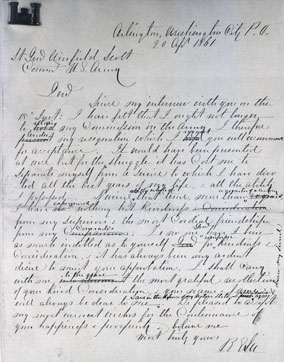 Arlington, Washington City P.O.
20 Apl 1861
Lt Genl Winfield Scott
Commd U.S. Army
Genl
Since my interview with you on the
18th Inst: I have felt that I ought not longer
to retain my Commission in the Army. I therefore
tender my resignation which I you will
for acceptance. It would have been presented
at once but for the struggle it has Cost me to
Separate myself from a Service to which I have devoted
all the best years of my life, & all the ability
I possessed. During that time, more than
I have nothing but Kindness
from my Superiors & the most Cordial friendship
from my Comrades To no one have I been
as much indebted as to yourself for Kindness &
Consideration & it has always been my ardent
desire to merit your approbation. I shall carry
with me the most grateful recollections
of your kind Consideration, & your name & fame
will always be dear to me.
Save in the defence of my native State
Be pleased to accept
my most earnest wishes for the Continuance of
your happiness & prosperity & believe me
Most truly yours
R E Lee